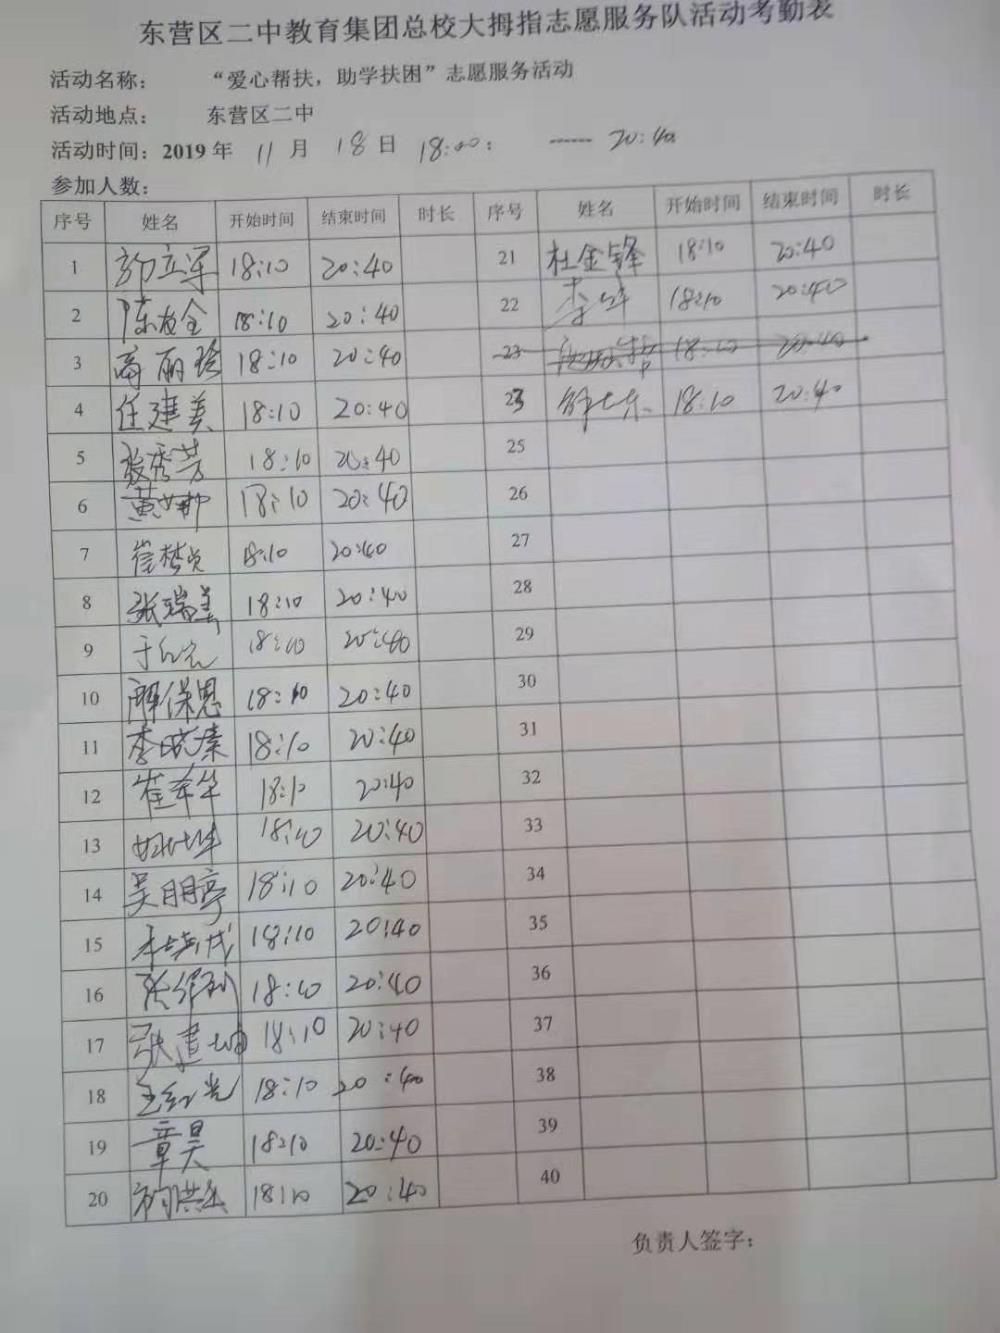 东营区二中教育集团总校大拇指志愿服务队活动考勤表
活动名称： “爱心帮扶，助学扶困”志愿服务活动
活动地点： 东营区二中
活动时间：2019 年 11 月 18 日 18:00： ------ 20:40
参加人数：
序号 姓名 开始时间 结束时间 时长 序号 姓名 开始时间 结束时间 时长
1 18:10 20:40 21 杜金锋 18:10 20:40
2 陈友全 18:10 20:40 22 18:10 20:40
3 高丽珍 18:10 20:40 23 18:10 20:40
4 任建美 18:10 20:40 23 18:10 20:40
5 张秀芳 18:10 20:40 25
6 黄娜 18:10 20:40 26
7 18:10 20:40 27
8 张瑞美 18:10 20:40 28
9 18:10 20:40 29
10 解保恩 18:10 20:40 30
11 李晓蓁 18:10 20:40 31
12 崔华 18:10 20:40 32
13 18:10 20:40 33
14 吴明亭 18:10 20:40 34
15 18:10 20:40 35
16 18:10 20:40 36
17 张建 18:10 20:40 37
18 王红光 18:10 20:40 38
19 章昊 18:10 20:40 39
20 18:10 20:40 40
负责人签字：